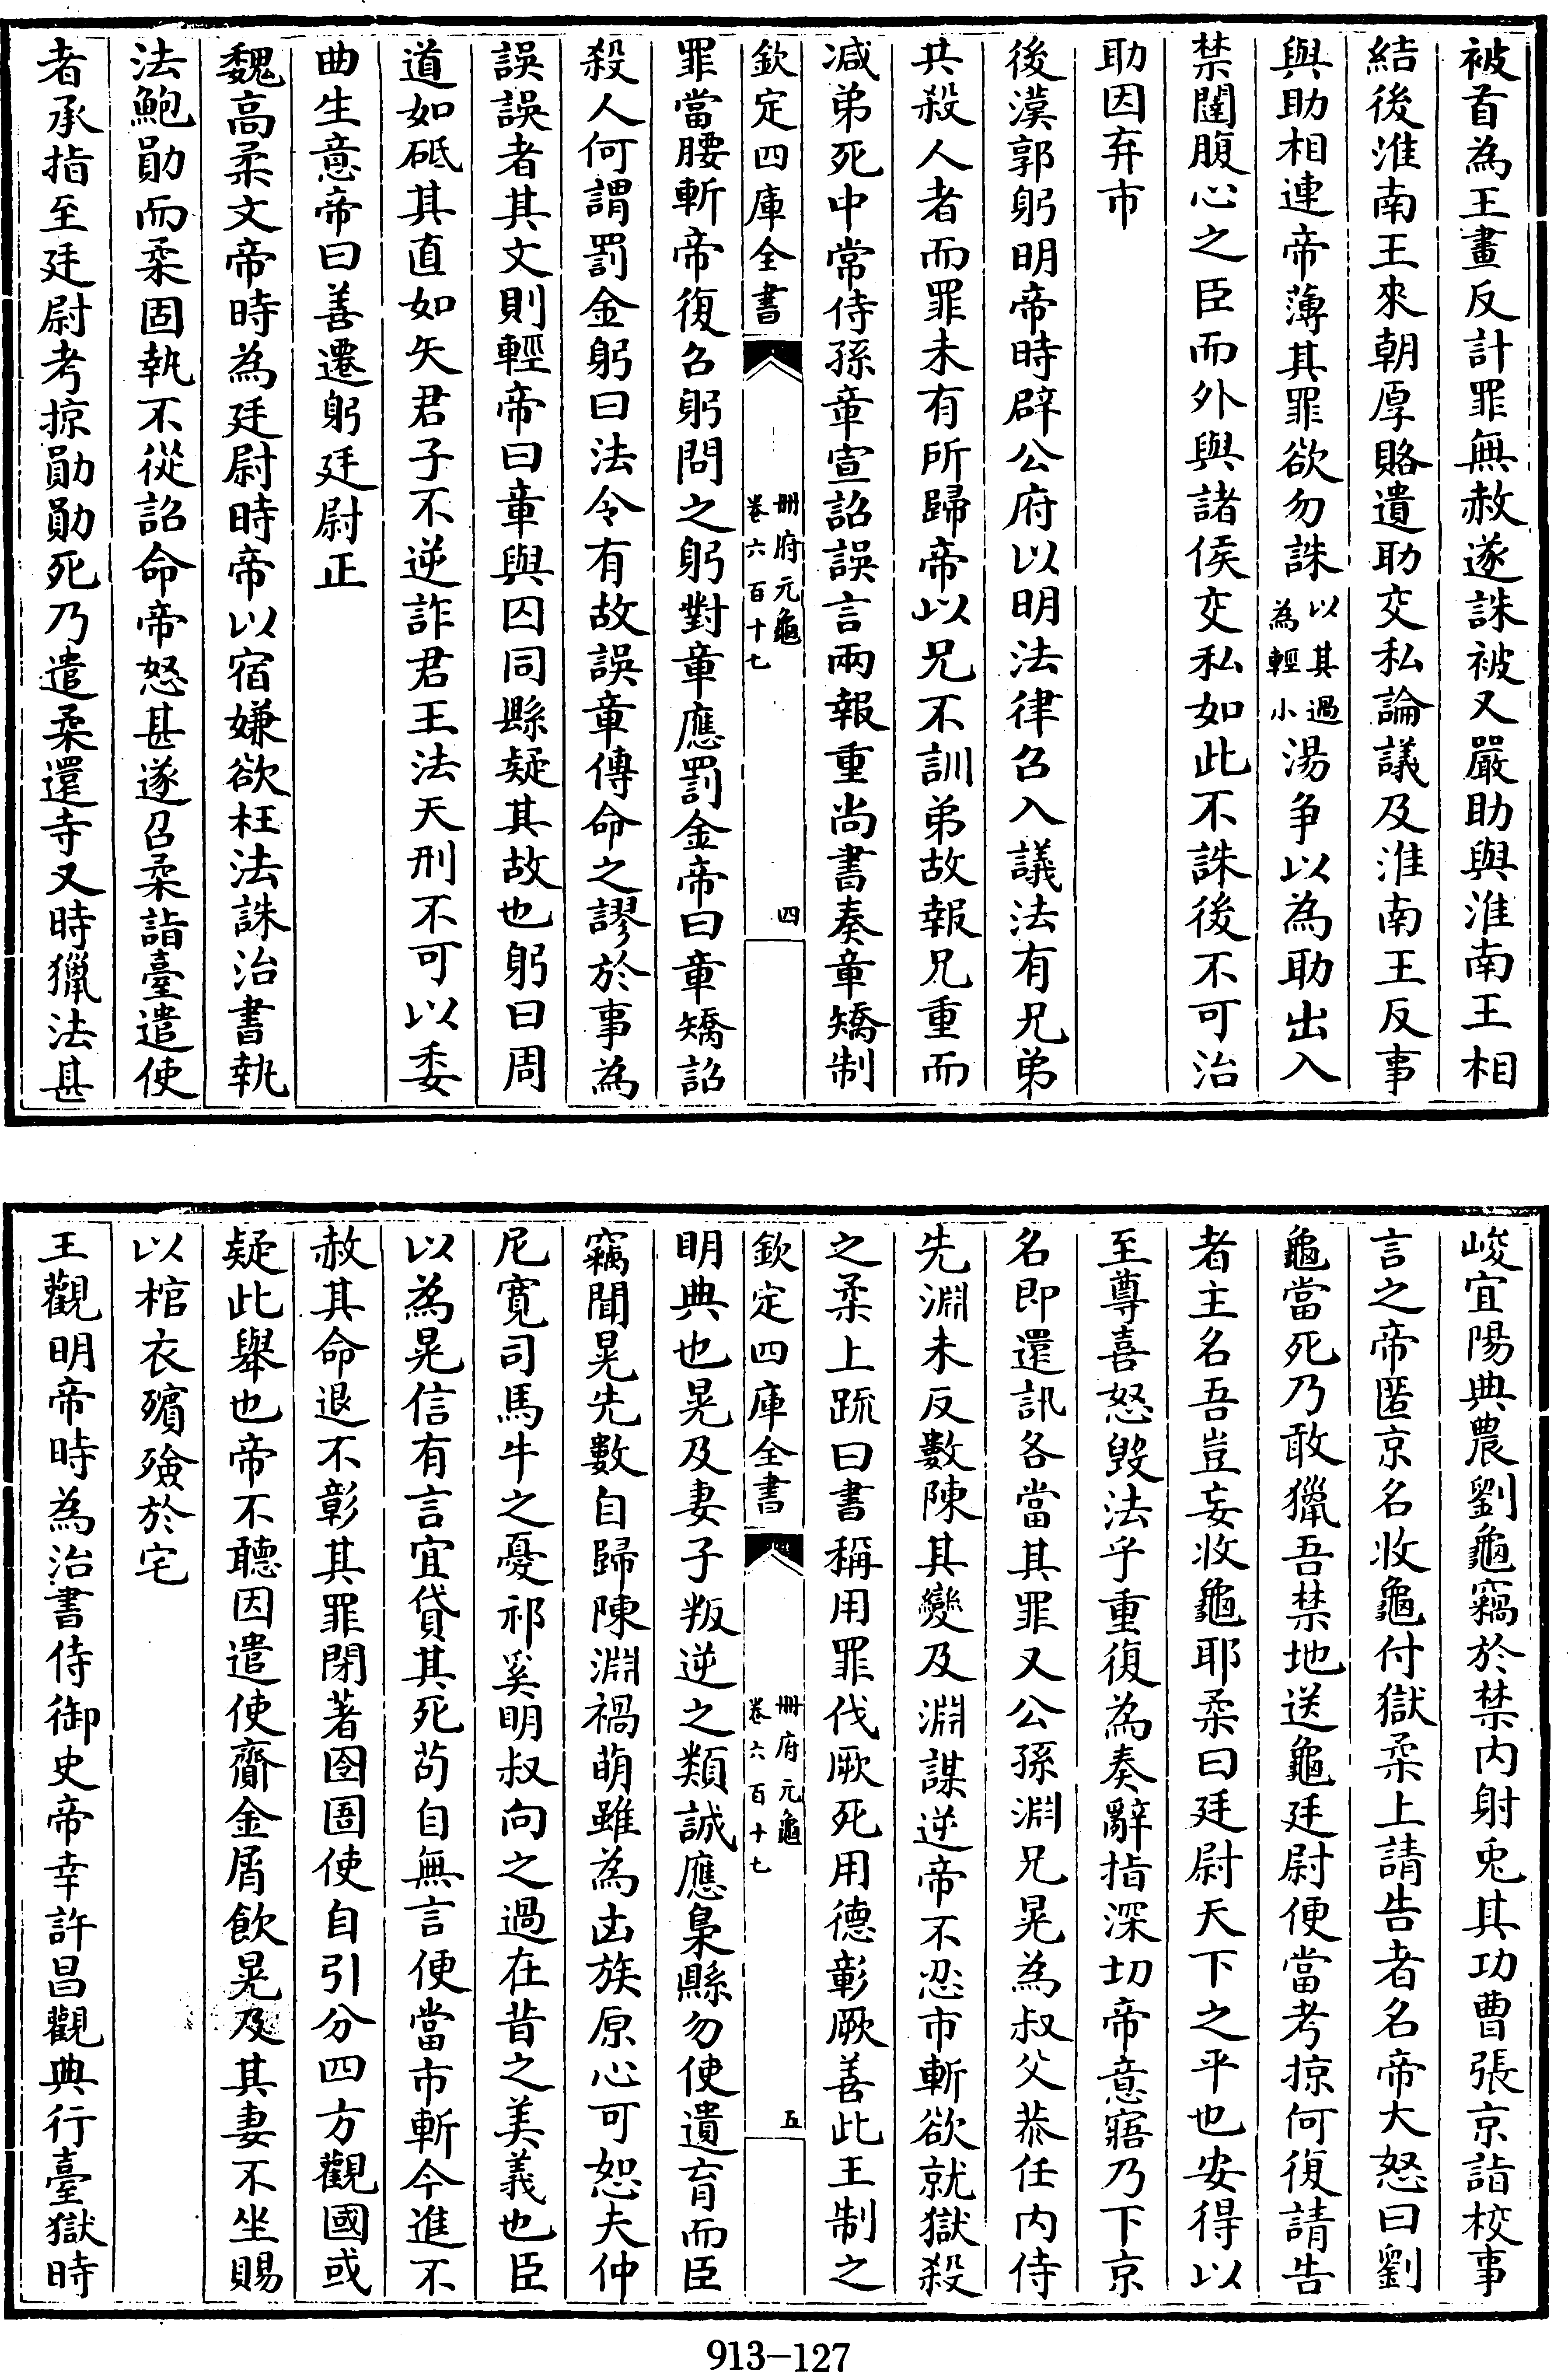 被首為王畫反計罪無赦遂誅被又嚴助與淮南王相
結後淮南王來朝厚賂遺助交私論議及淮南王反事
與助相連帝薄其罪欲勿誅以其過為輕小湯争以為助出入
禁闥腹心之臣而外與諸侯交私如此不誅後不可治
助因弃市
後漢郭躬明帝時辟公府以明法律召入議法有兄弟
共殺人者而罪未有所歸帝以兄不訓弟故報兄重而
减弟死中常侍孫章宣詔誤言兩報重尚書奏章矯制
欽定四庫全書
冊府元龜
卷六百十七
四
罪當腰斬帝復召躬問之躬對章應罰金帝曰章矯詔
殺人何謂罰金躬曰法令有故誤章傳命之謬於事為
誤誤者其文則輕帝曰章與囚同縣疑其故也躬曰周
道如砥其直如矢君子不逆詐君王法天刑不可以委
曲生意帝曰善遷躬廷尉正
魏高柔文帝時為廷尉時帝以宿嫌欲枉法誅治書執
法鮑勛而柔固執不從詔命帝怒甚遂召柔詣臺遣使
者承指至廷尉考掠勛勛死乃遣柔還寺又時獵法甚
峻宜陽典農劉龜竊於禁内射兎其功曹張京詣校事
言之帝匿京名收龜付獄柔上請告者名帝大怒曰劉
龜當死乃敢獵吾禁地送龜廷尉便當考掠何復請告
者主名吾豈妄收龜耶柔曰廷尉天下之平也安得以
至尊喜怒毁法乎重復為奏辭指深切帝意寤乃下京
名即還訊各當其罪又公孫淵兄晃為叔父恭任内侍
先淵未反數陳其變及淵謀逆帝不忍市斬欲就獄殺
之柔上疏曰書稱用罪伐厥死用德彰厥善此王制之
欽定四庫全書
冊府元龜
卷六百十七
五
明典也晃及妻子叛逆之類誠應梟縣勿使遺育而臣
竊聞晃先數自歸陳淵禍萌雖為凶族原心可恕夫仲
尼寛司馬牛之憂祁奚明叔向之過在昔之美義也臣
以為晃信有言宜貸其死茍自無言便當市斬今進不
赦其命退不彰其罪閉著囹圄使自引分四方觀國或
疑此舉也帝不聽因遣使齎金屑飲晃及其妻不坐賜
以棺衣殯殮於宅
王觀明帝時為治書侍御史帝幸許昌觀典行臺獄時
913-127